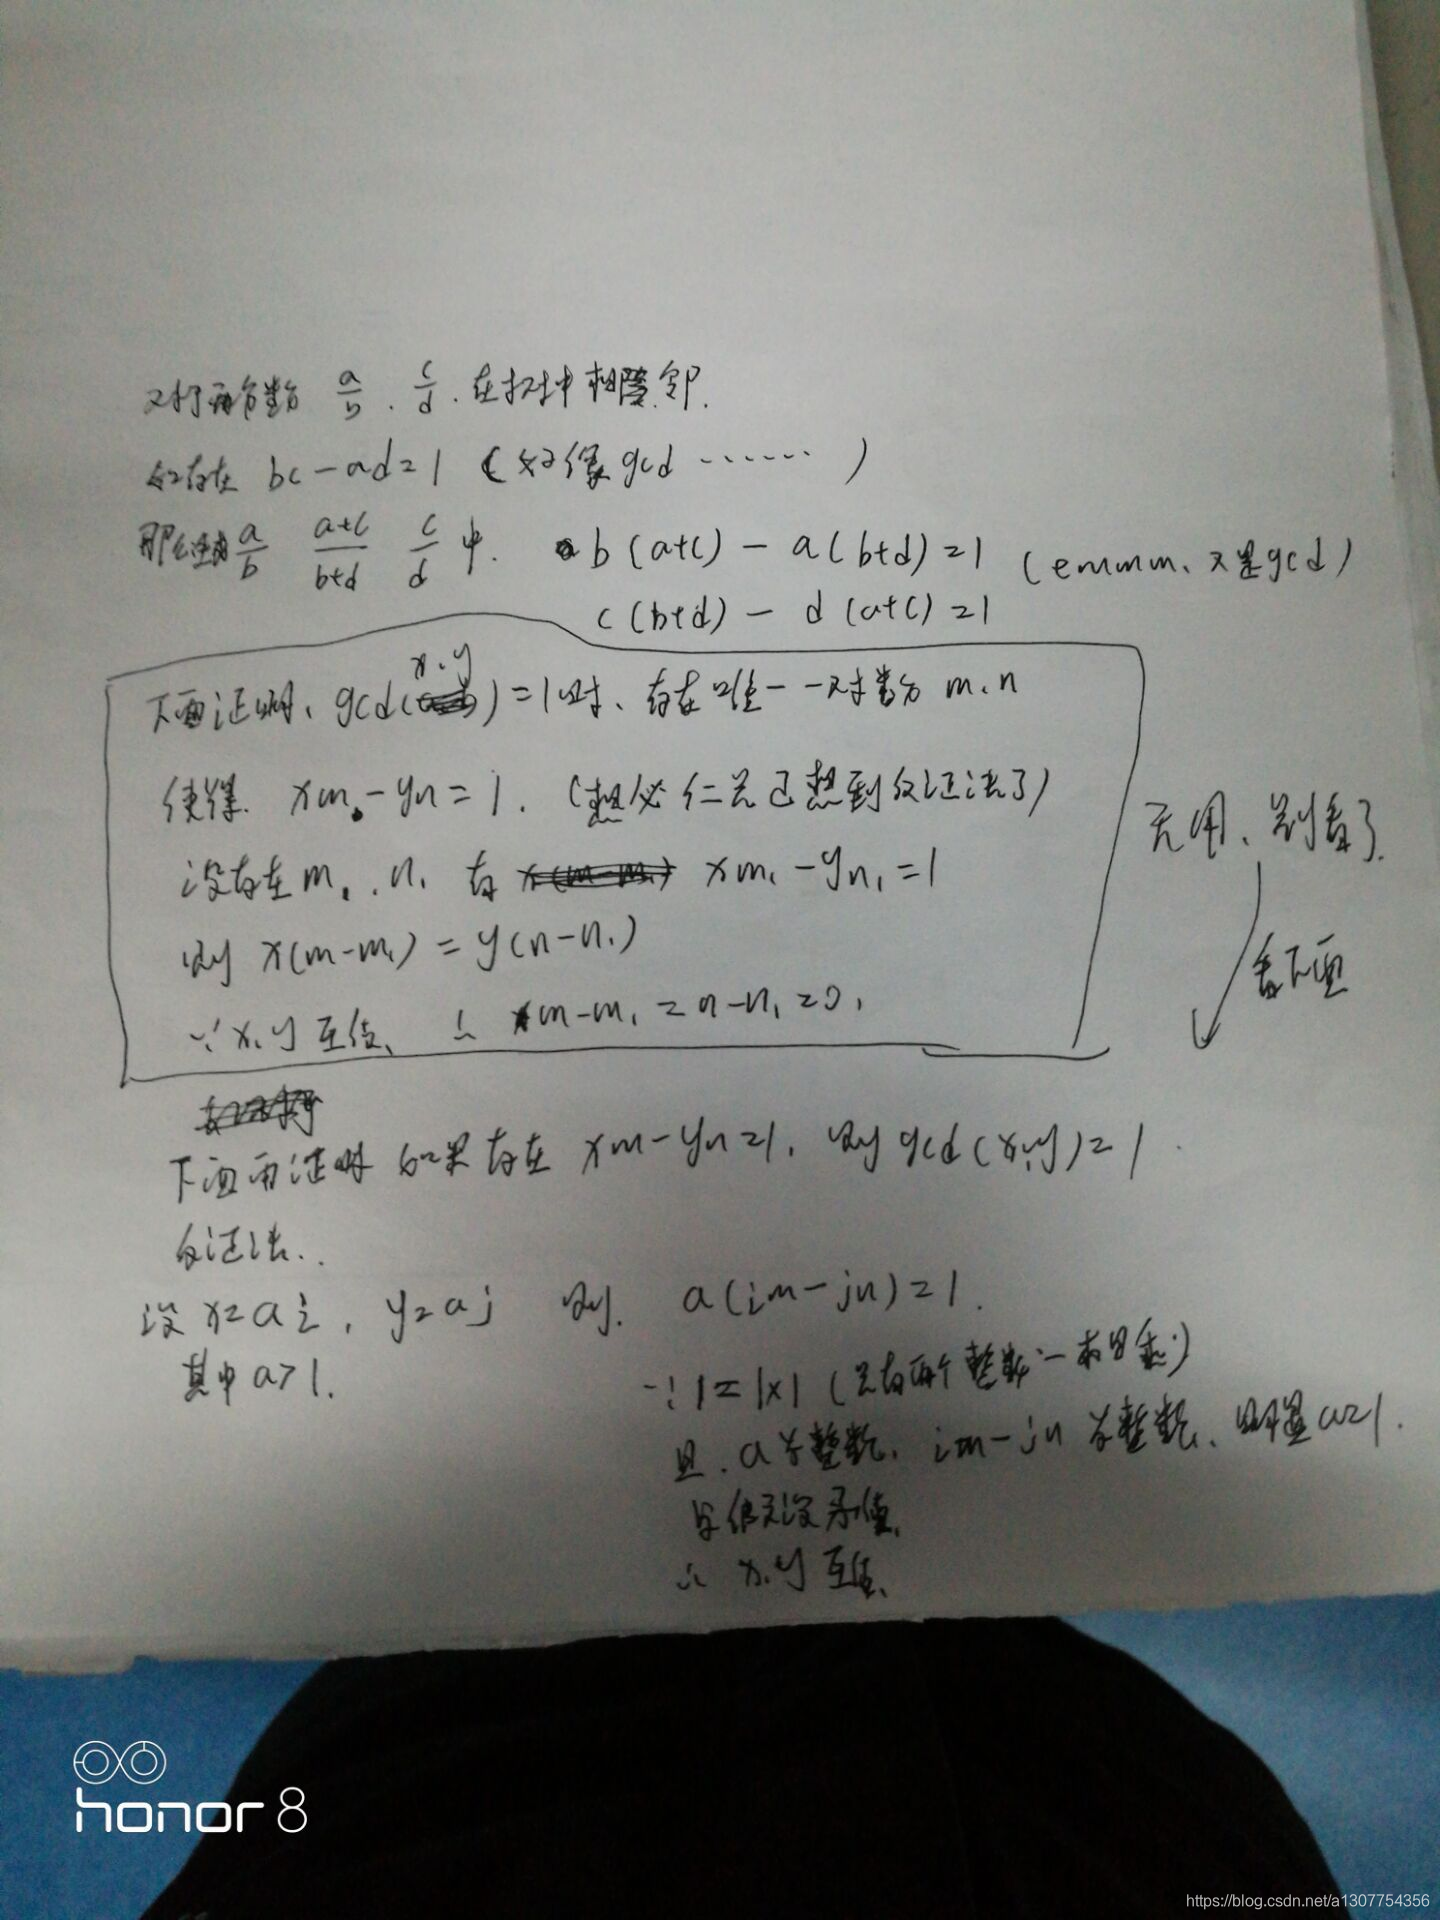 对于两分数 a/b、c/d 在树中相邻.
如存在 bc-ad=1 (好像gcd ……)
那么 a/b (a+c)/(b+d) c/d 中. b(a+c)-a(b+d)=1 (emmm、又是gcd)
c(b+d)-d(a+c)=1
下面证明、gcd(x.y)=1时、存在唯一一对数 m.n
使得 xm-yn=1. (想必仁兄已想到反证法了)
设存在m1.n1 有 xm1-yn1=1
则 x(m-m1)=y(n-n1)
∵x、y互质、∴ m-m1=n-n1=0.
无用、别看了.
看下面
下面再证明 如果存在 xm-yn=1. 则gcd(x.y)=1.
反证法..
设 x=ai, y=aj 则. a(im-jn)=1.
其中a>1.
∵1=1x1 (只有两个整数一相乘)
且.a为整数. im-jn 为整数、明显a=1.
与假设矛盾.
∴ x.y互质.
honor 8
https://blog.csdn.net/a1307754356